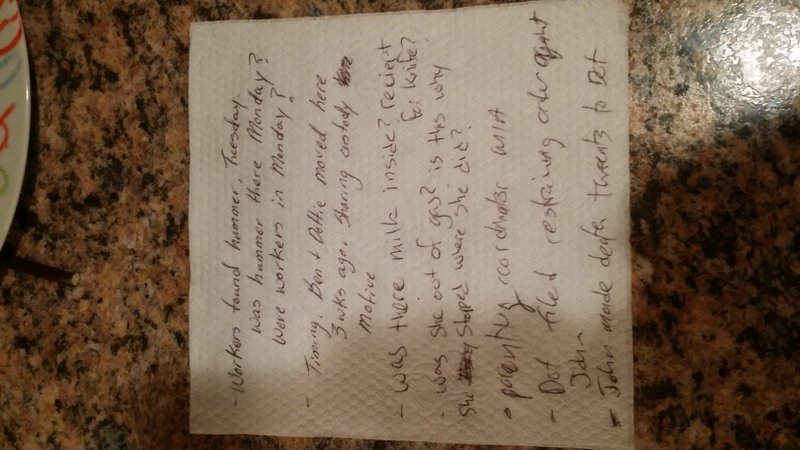 - Workers found hammer, Tuesday.
was hammer there Monday?
Were workers in Monday?
- Timing. Ben & Dettie moved here
3 wks ago. Sharing custody
motive
- was there milk inside? reciept
for knife?
- was she out of gas? is this why
she stopped where she did?
• parenting coordinator MIA
- Dot filed restraining order against
John
- John made death threats to Dot